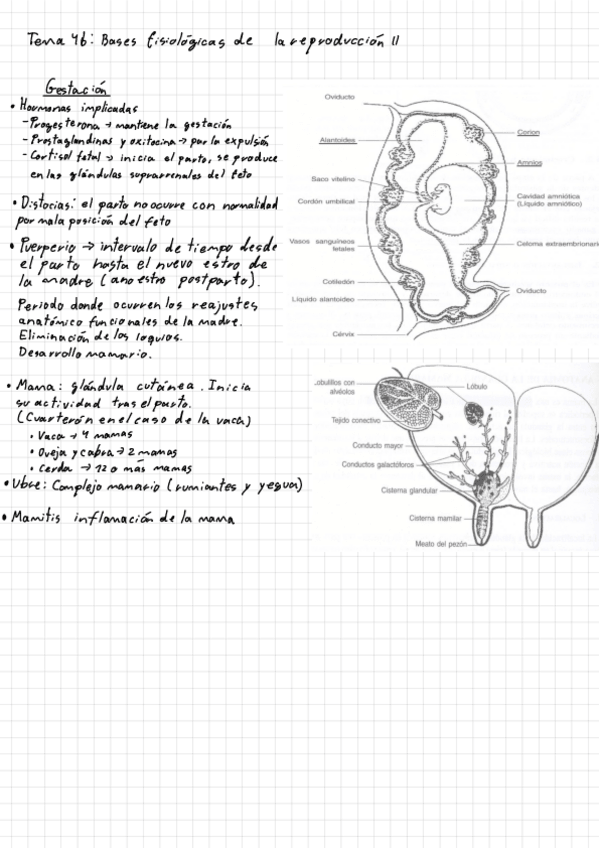 Tema 4b: Bases fisiológicas de la reproducción II
Gestación
• Hormonas implicadas
- Progesterona → mantiene la gestación
- Prostaglandinas y oxitocina → para la expulsión
- Cortisol fetal → inicia el parto, se produce
en las glándulas suprarrenales del feto
• Distocias: el parto no ocurre con normalidad
por mala posición del feto
• Puerperio → intervalo de tiempo desde
el parto hasta el nuevo estro de
la madre (anestro postparto).
Periodo donde ocurren los reajustes
anatómico funcionales de la madre.
Eliminación de los loquios.
Desarrollo mamario.
• Mama: glándula cutánea. Inicia
su actividad tras el parto.
(Cuarterón en el caso de la vaca)
• Vaca → 4 mamas
• Oveja y cabra → 2 mamas
• Cerda → 12 o más mamas
• Ubre: Complejo mamario (rumiantes y yegua)
• Mamitis inflamación de la mama
Oviducto
Alantoides
Corion
Amnios
Saco vitelino
Cordón umbilical
Cavidad amniótica
(Líquido amniótico)
Vasos sanguíneos
fetales
Celoma extraembrionario
Cotiledón
Líquido alantoideo
Oviducto
Cérvix
Lobulillos con
alvéolos
Lóbulo
Tejido conectivo
Conducto mayor
Conductos galactóforos
Cisterna glandular
Cisterna mamilar
Meato del pezón